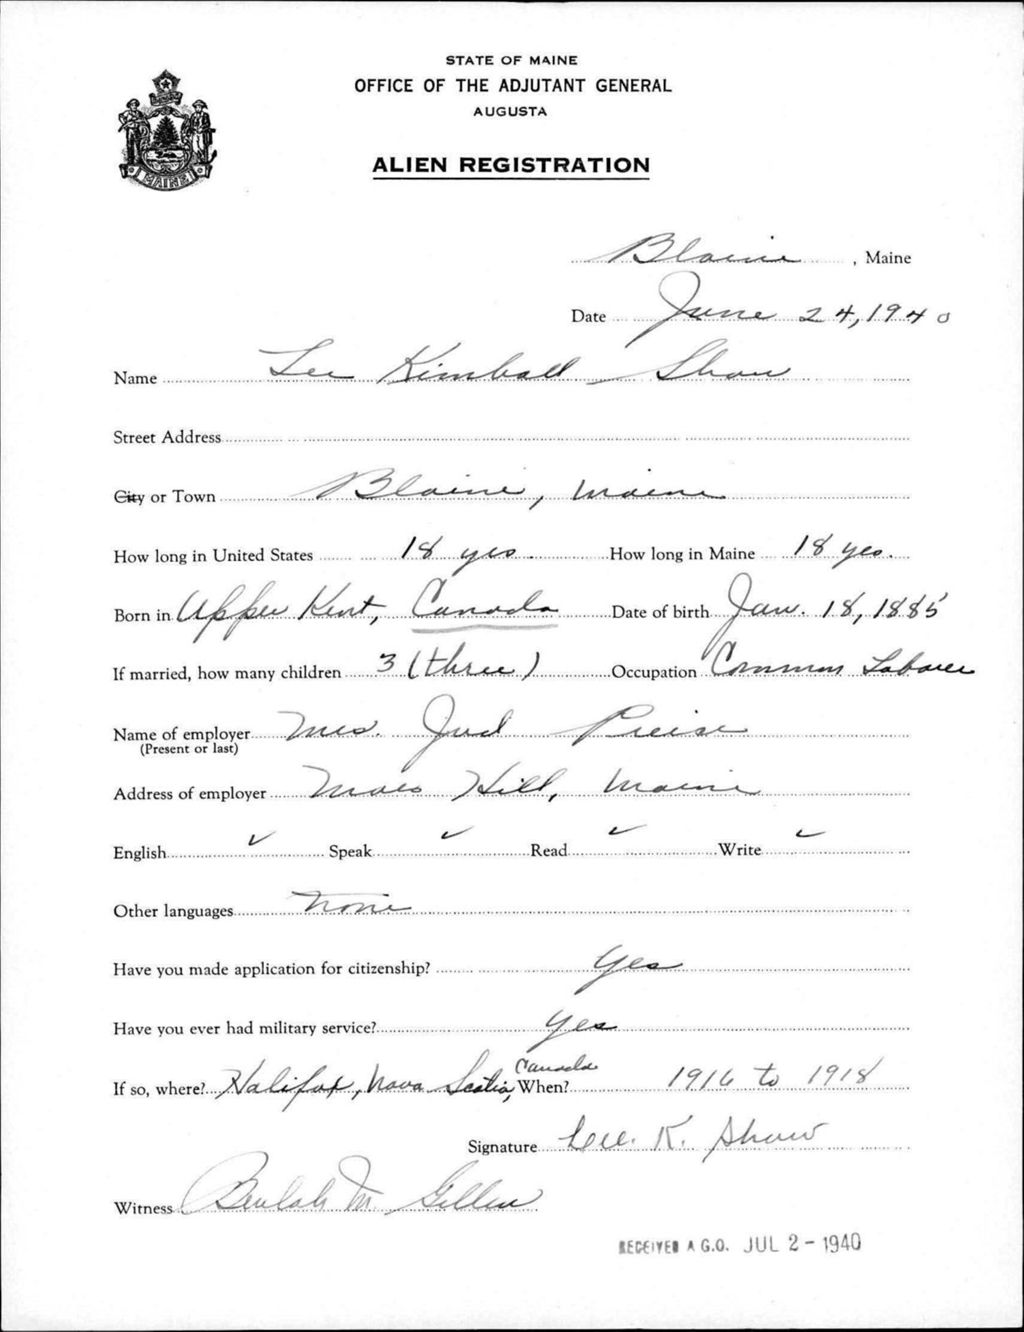 STATE OF MAINE
OFFICE OF THE ADJUTANT GENERAL
AUGUSTA
ALIEN REGISTRATION
MAINE
Blaine, Maine
Date June 24, 1940
Name Lee Kimball Shaw
Street Address
City or Town Blaine, Maine
How long in United States 18 yrs. How long in Maine 18 yrs.
Born in Upper Kent, Canada Date of birth Jan. 18, 1885
If married, how many children 3 (three) Occupation Common Laborer
Name of employer Mrs. Jud
(Present or last)
Address of employer Mars Hill, Maine
English ✓ Speak ✓ Read ✓ Write ✓
Other languages None
Have you made application for citizenship? Yes
Have you ever had military service? Yes
If so, where? Halifax, Nova Scotia, Canada When? 1916 to 1918
Signature Lee. K. Shaw
Witness Beulah M.
RECEIVED A.G.O. JUL 2 - 1940